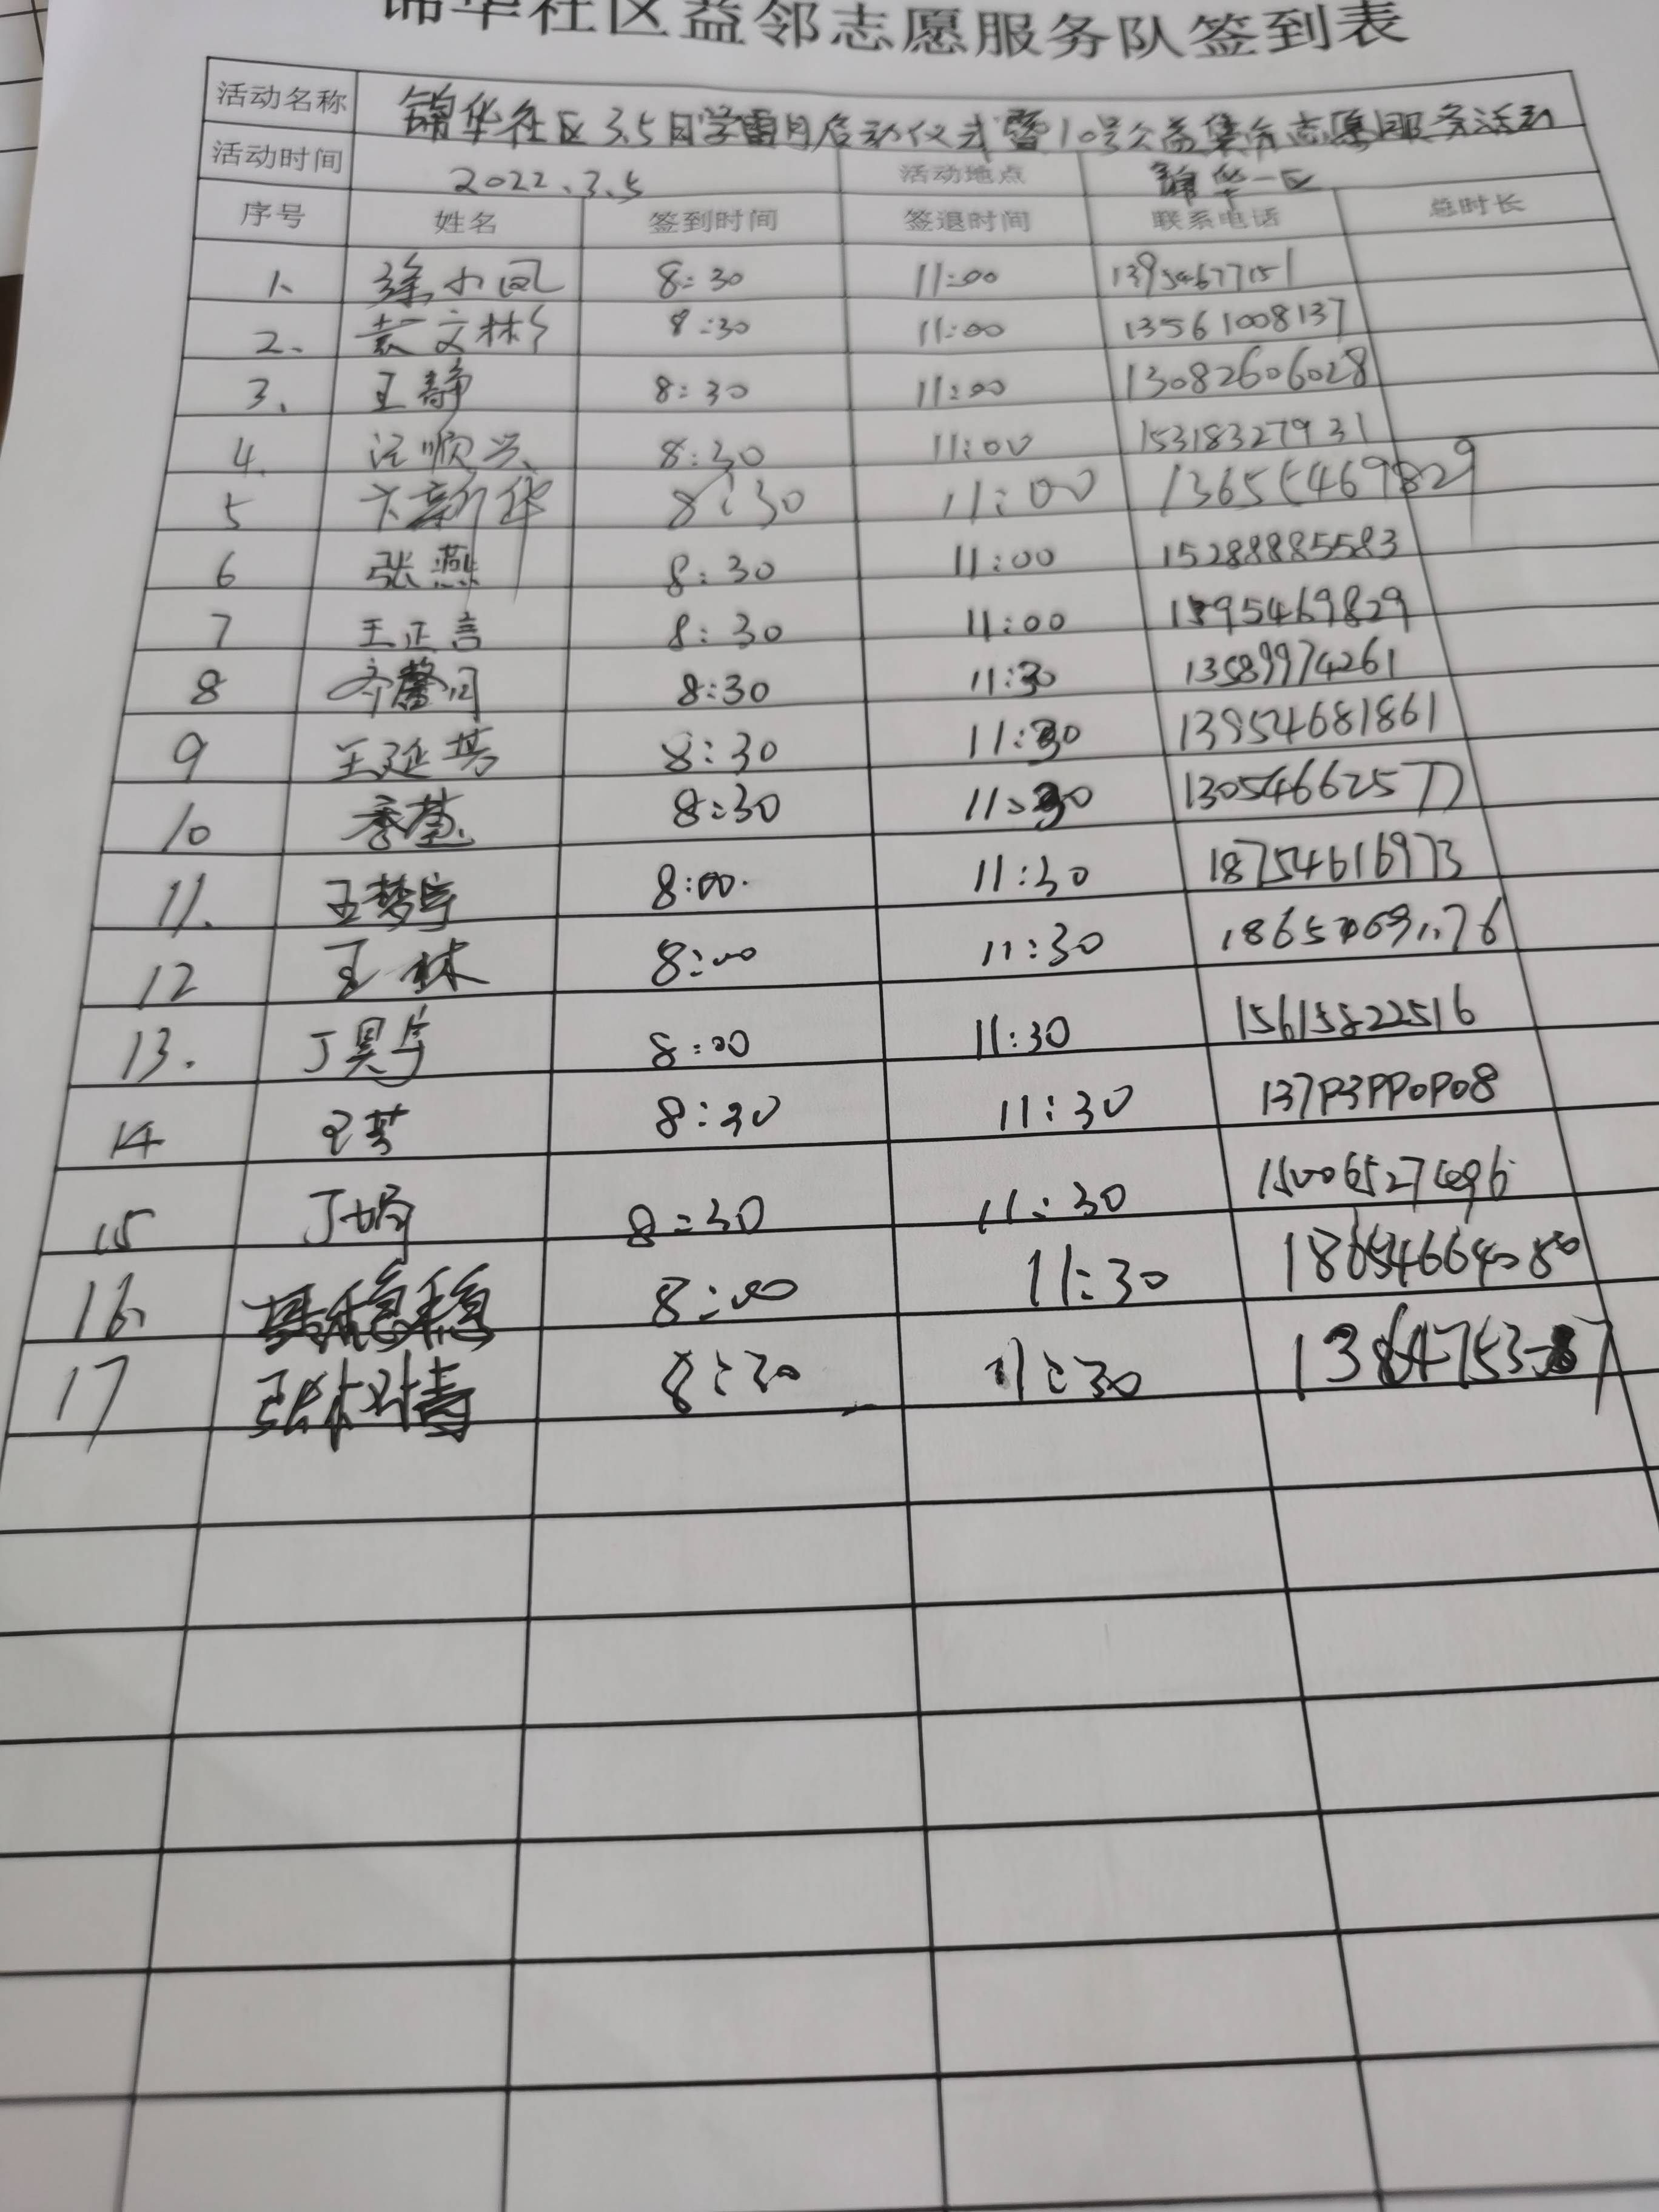 锦华社区益邻志愿服务队签到表
活动名称 锦华社区3.5日学雷月启动仪式暨10号公益集合志愿服务活动
活动时间 2022.3.5 活动地点 锦华一区
序号 姓名 签到时间 签退时间 联系电话 总时长
1、 徐小凤 8:30 11:00 13954677151
2、 袁文彬 8:30 11:00 13561008137
3、 王静 8:30 11:00 13082606028
4、 汪顺兴 8:30 11:00 15318327931
5 卞新华 8:30 11:00 13655469829
6 张燕 8:30 11:00 15288885583
7 王正言 8:30 11:00 1595469829
8 齐馨 8:30 11:30 13589974261
9 王延芳 8:30 11:30 13954681861
10 季慧 8:30 11:30 13054662577
11. 王梦宇 8:00 11:30 18754616973
12 王林 8:00 11:30
13. 丁昊宇 8:00 11:30 15615822516
14 王芳 8:30 11:30 13793990908
15 丁娟 8:30 11:30 15006527696
16、 8:00 11:30 18654664080
17 张树青 8:30 11:30